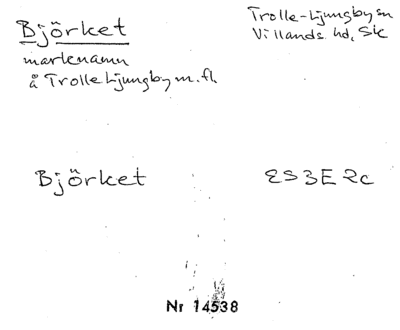 Björket
Trolle-Ljungby sn
Villands hd, Sk
marknamn
å Trolle Ljungby m. fl.
Björket
ES3E2c
Nr 14538